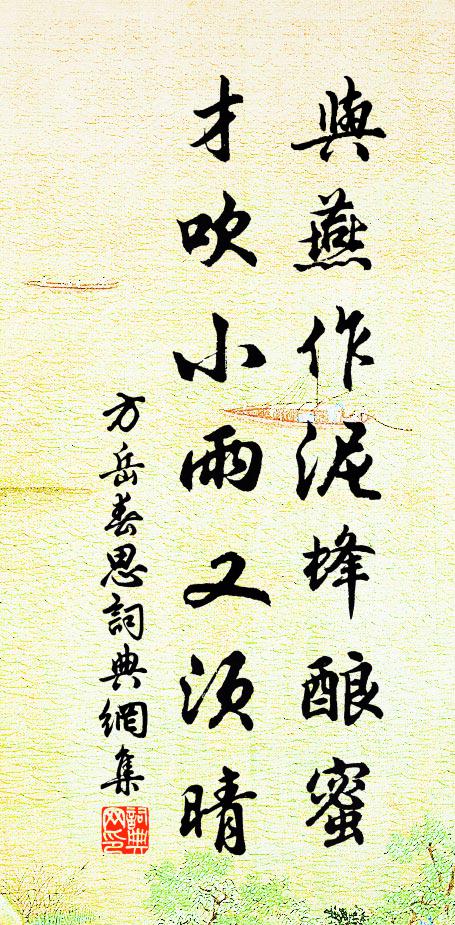 與燕作泥蜂酿蜜
才吹小雨又须晴
方岳春思詞典網集
詞典網印